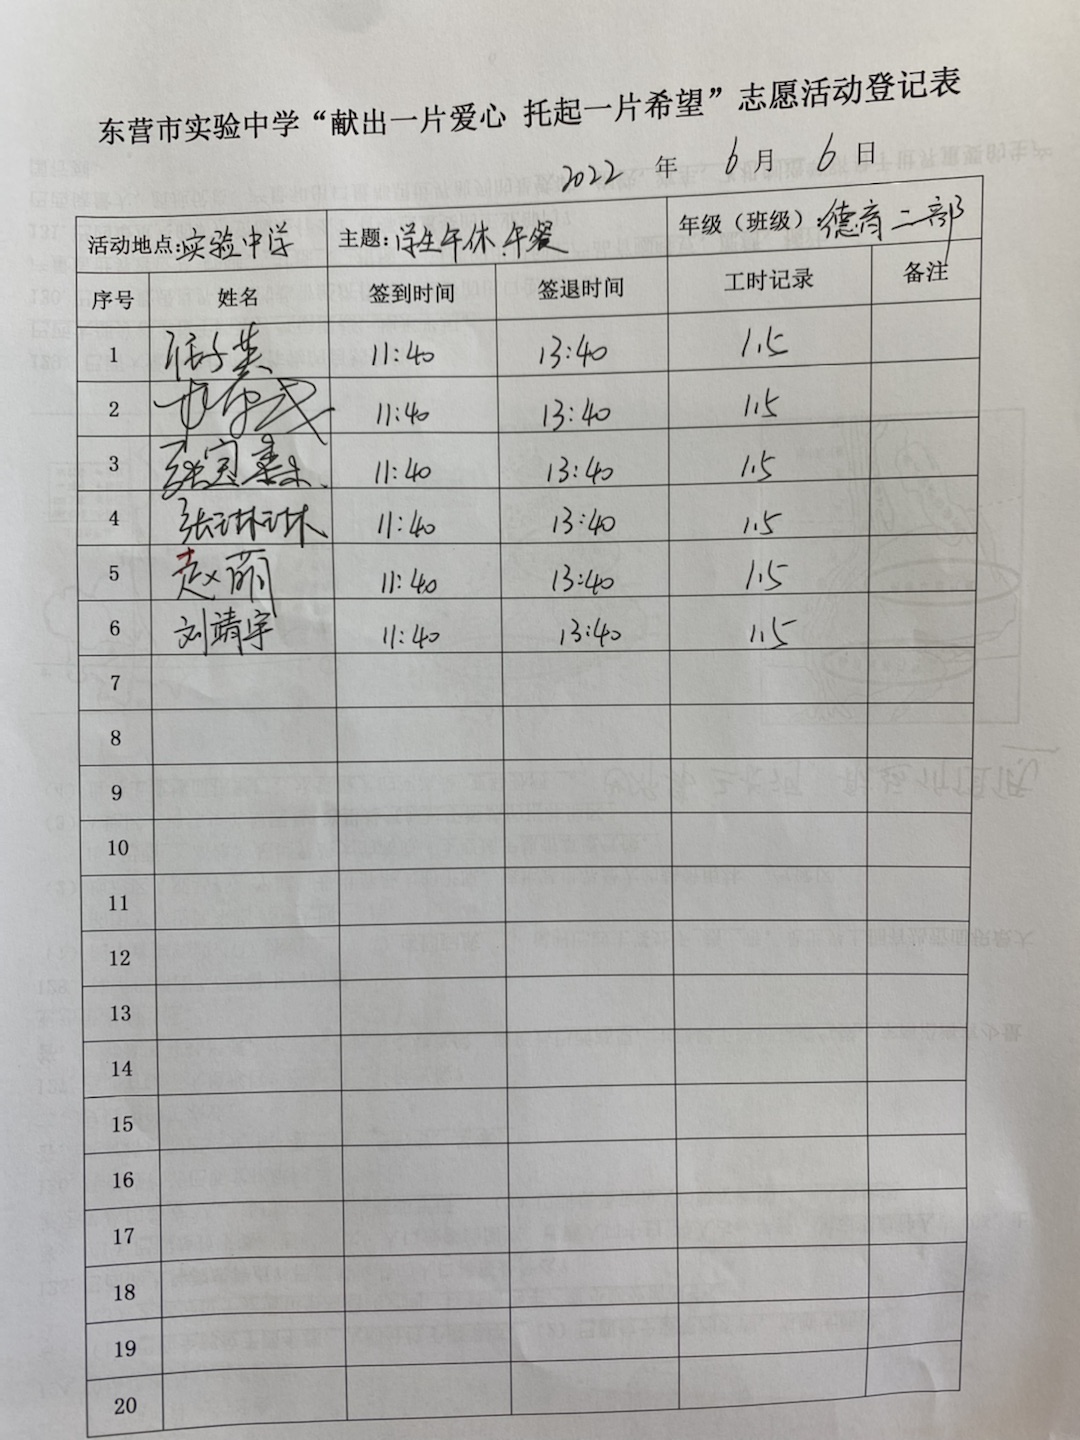 东营市实验中学“献出一片爱心 托起一片希望”志愿活动登记表
2022 年 6 月 6 日
活动地点:实验中学 主题:学生午休.午餐 年级（班级）:德育二部
序号 姓名 签到时间 签退时间 工时记录 备注
1 张子英 11:40 13:40 1.5
2 11:40 13:40 1.5
3 张宝 11:40 13:40 1.5
4 张琳琳 11:40 13:40 1.5
5 赵萌 11:40 13:40 1.5
6 刘靖宇 11:40 13:40 1.5
7
8
9
10
11
12
13
14
15
16
17
18
19
20